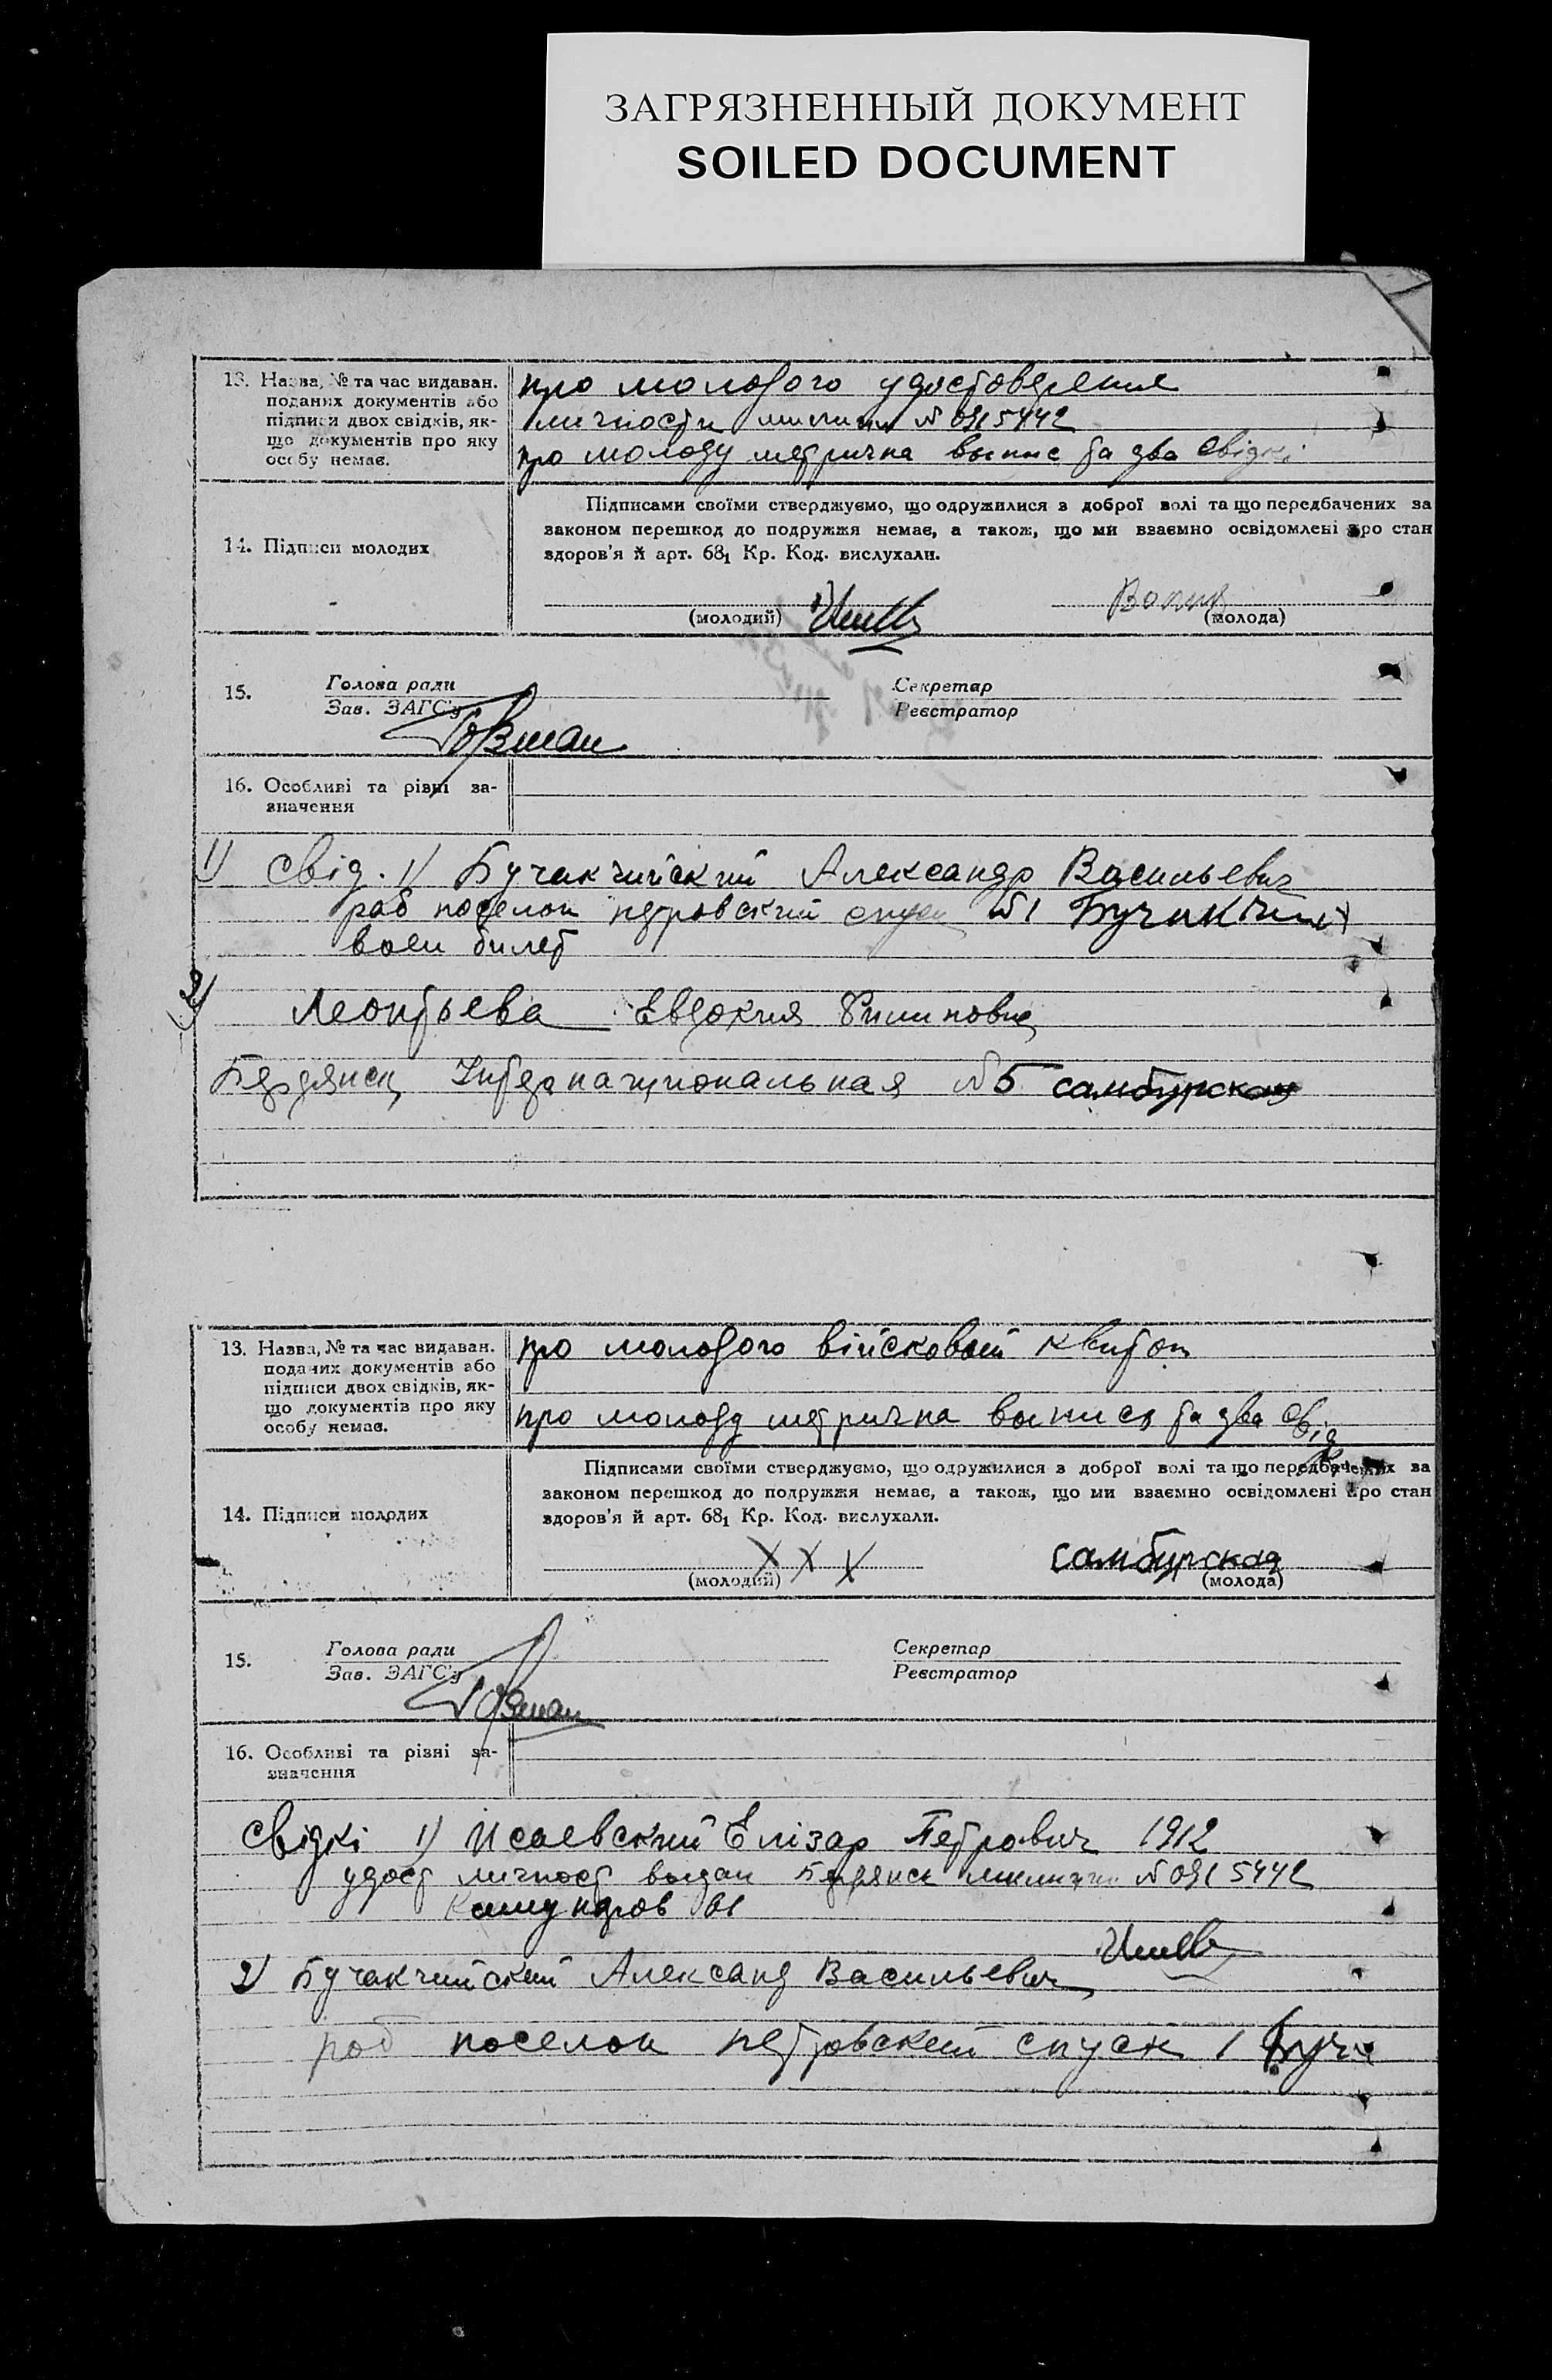 ЗАГРЯЗНЕННЫЙ ДОКУМЕНТ
SOILED DOCUMENT
13. Назва, № та час видаван.
поданих документів або
підписи двох свідків, як-
що документів про яку
особу немає.
про молодого удостоверение
личности милиции № 0915442
про молоду метрична выпис та два свідкі
14. Підписи молодих
Підписами своїми стверджуємо, що одружилися з доброї волі та що передбачених за
законом перешкод до подружжя немає, а також, що ми взаємно освідомлені про стан
здоров'я й арт. 68₁ Кр. Код. вислухали.
(молодий)
(молода)
15.
Голова ради
Зав. ЗАГС'у
Секретар
Реєстратор
16. Особливі та різні за-
значення
1) свід. 1) Бучакчийский Александр Васильевич
раб поселок петровский спуск №1
воен билет
2)
Леонтьева Евдокия
Бердянск Интернациональная №5 самбурская
13. Назва, № та час видаван.
поданих документів або
підписи двох свідків, як-
що документів про яку
особу немає.
про молодого війсковый квиток
про молоду метрична выпись та два свідк
14. Підписи молодих
Підписами своїми стверджуємо, що одружилися з доброї волі та що передбачених за
законом перешкод до подружжя немає, а також, що ми взаємно освідомлені про стан
здоров'я й арт. 68₁ Кр. Код. вислухали.
Х Х Х
самбурская
(молодий)
(молода)
15.
Голова ради
Зав. ЗАГС'у
Секретар
Реєстратор
16. Особливі та різні за-
значення
свідкі 1) Исаевский Елізар Петрович 1912
удост личност выдан Бердянск милиции № 0915442
2) Бучакчийский Александ Васильевич
раб поселок петровский спуск 1 Буч